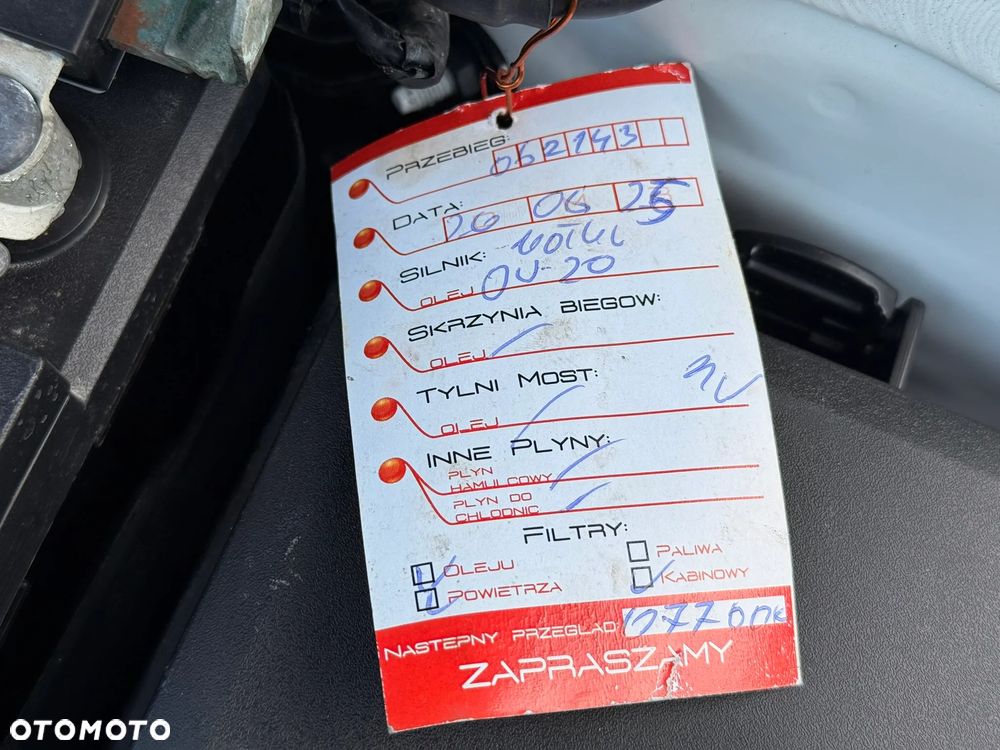 PRZEBIEG: 062143
DATA: 26 06 25
SILNIK:
OLEJ 0W-20
SKRZYNIA BIEGOW:
OLEJ
TYLNI MOST:
OLEJ
INNE PLYNY:
PLYN
HAMULCOWY
PLYN DO
CHLODNIC
FILTRY:
OLEJU PALIWA
POWIETRZA KABINOWY
NASTEPNY PRZEGLAD
ZAPRASZAMY
OTOMOTO